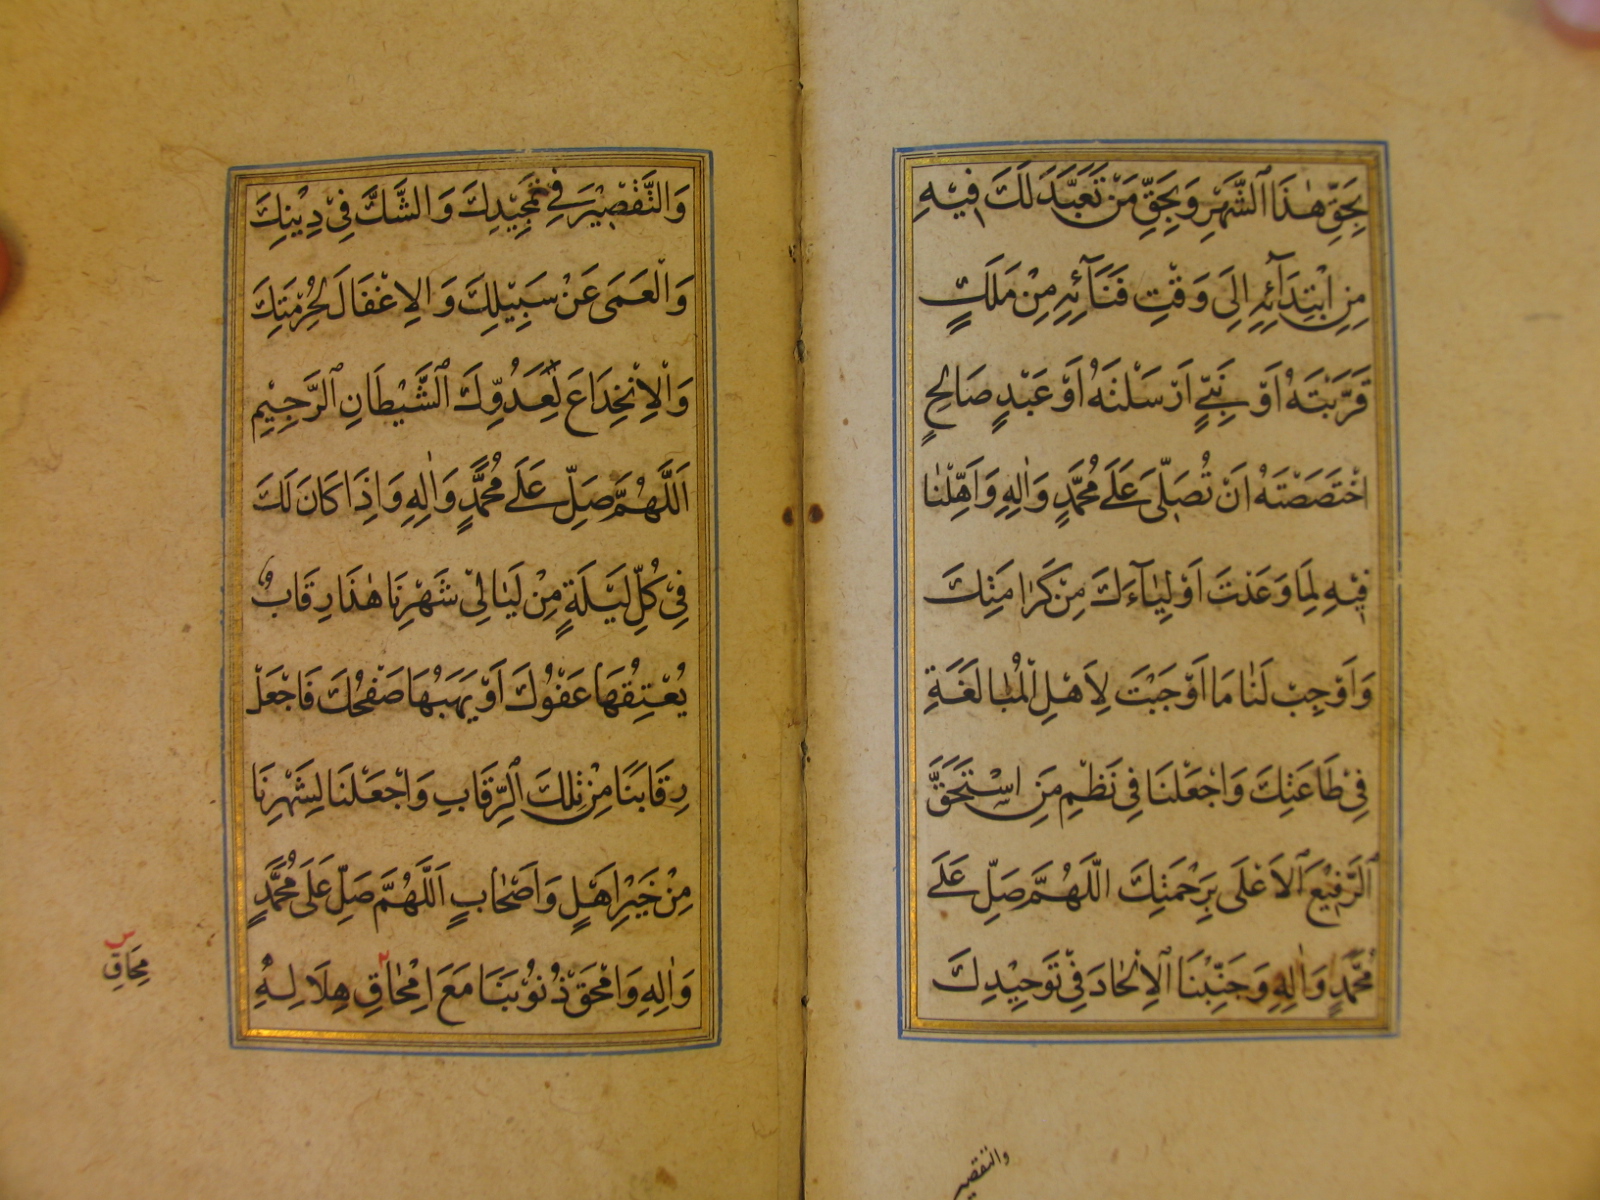 بِحَقِّ هٰذَا ٱلشَّهْرِ وَبِحَقِّ مَنْ تَعَبَّدَ لَكَ فِيْهِ
مِنِ ابْتِدَآئِهِ اِلىَ وَقْتِ فَنَآئِهِ مِنْ مَلَكٍ
قَرَّبْتَهُ اَوْ نَبِيٍّ اَرْسَلْتَهُ اَوْ عَبْدٍ صَالِحٍ
اخْتَصَصْتَهُ اَنْ تُصَلِّيَ عَلَے مُحَمَّدٍ وَاٰلِهِ وَاَهِّلْنَا
فِيْهِ لِمَا وَعَدْتَ اَوْلِيَآءَكَ مِنْ كَرَامَتِكَ
وَاَوْجِبْ لَنَا مَا اَوْجَبْتَ لِاَهْلِ الْمُبَالَغَةِ
فِىْ طَاعَتِكَ وَاجْعَلْنَا فِى نَظْمِ مَنِ اسْتَحَقَّ
ٱلرَّفِيْعَ ٱلاَعْلَى بِرَحْمَتِكَ اللّٰهُمَّ صَلِّ عَلَے
مُحَمَّدٍ وَاٰلِهِ وَجَنِّبْنَا ٱلاِلْحَادَ فِىْ تَوْحِيْدِكَ
والتقصير
وَالتَّقْصِيْرَ فِے تَمْجِيْدِكَ وَالشَّكَّ فِىْ دِيْنِكَ
وَالْعَمَى عَنْ سَبِيْلِكَ وَالاِغْفَالَ لِحُرْمَتِكَ
وَالْاِنْخِدَاعَ لِعَدُوِّكَ ٱلشَّيْطَانِ ٱلرَّجِيْمِ
اَللّٰهُمَّ صَلِّ عَلَے مُحَمَّدٍ وَاٰلِهِ وَاِذَا كَانَ لَكَ
فِىْ كُلِّ لَيْلَةٍ مِنْ لَيَالِىْ شَهْرِنَا هٰذَا رِقَابٌ
يُعْتِقُهَا عَفْوُكَ اَوْ يَهَبُهَا صَفْحُكَ فَاجْعَلْ
رِقَابَنَا مِنْ تِلْكَ ٱلرِّقَابِ وَاجْعَلْنَا لِشَهْرِنَا
مِنْ خَيْرِ اَهْلٍ وَاَصْحَابٍ اَللّٰهُمَّ صَلِّ عَلَى مُحَمَّدٍ
وَاٰلِهِ وَامْحَقْ ذُنُوْبَنَا مَعَ امْحَاقِ هِلَالِهِ
مِحَاقِ